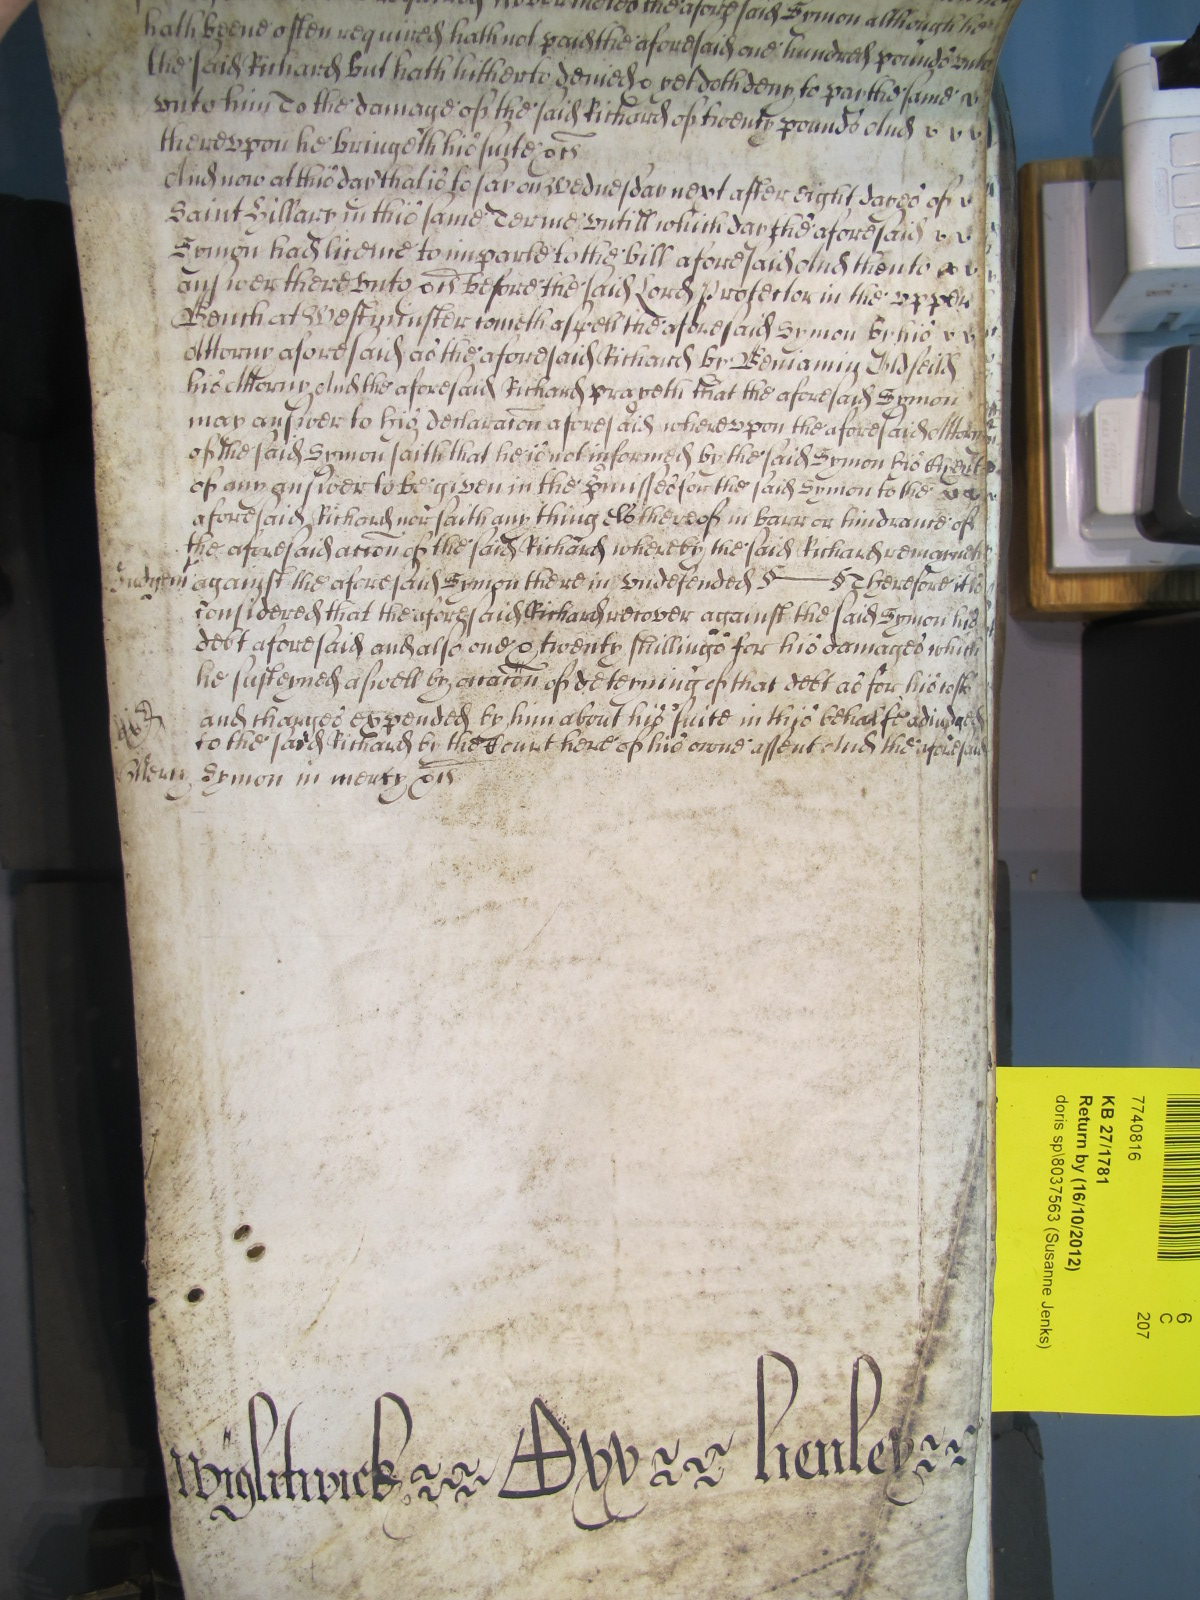 the aforesaid Symon although hee
hath beene often required hath not paid the aforesaid one hundred pounds unto
the said Richard but hath hitherto denied & yet doth deny to pay the same v
unto him To the damage of the said Richard of twenty pounds And v v v
thereupon he bringeth his suite &c
And now at this day that is to say on Wednesday next after eight dayes of v
Saint Hillary in this same Terme untill which day the aforesaid v v
Symon had licence to imparle to the bill aforesaid And then to v v
answer thereunto &c before the said Lord Protector in the upper
Bench at Westminster cometh aswell the aforesaid Symon by his v v
Attorny aforesaid as the aforesaid Richard by Beniamin
his Attorny And the aforesaid Richard prayeth that the aforesaid Symon
may answer to his declaracõn aforesaid whereupon the aforesaid Attorny
of the said Symon saith that he is not informed by the said Symon his Clyent
of any answer to be given in the p̃misses for the said Symon to the
aforesaid Richard nor saith any thing els thereof in barr or hindrance of
the aforesaid accõn of the said Richard whereby the said Richard remaineth
Judgem̃t against the aforesaid Symon therein undefended § § Therefore it is
considered that the aforesaid Richard recover against the said Symon his
debt aforesaid and also one & twenty shillings for his damages which
he susteyned aswell by occacõn of deteyning of that debt as for his costs
and charges expended by him about his suite in this behalfe adiudged
to the said Richard by the Court here of his owne assent And the aforesaid
Mercy Symon in mercy &c
Wightwick Oxõn henley
7740816
KB 27/1781
Return by (16/10/2012)
doris sp\8037563 (Susanne Jenks)
6
C
207